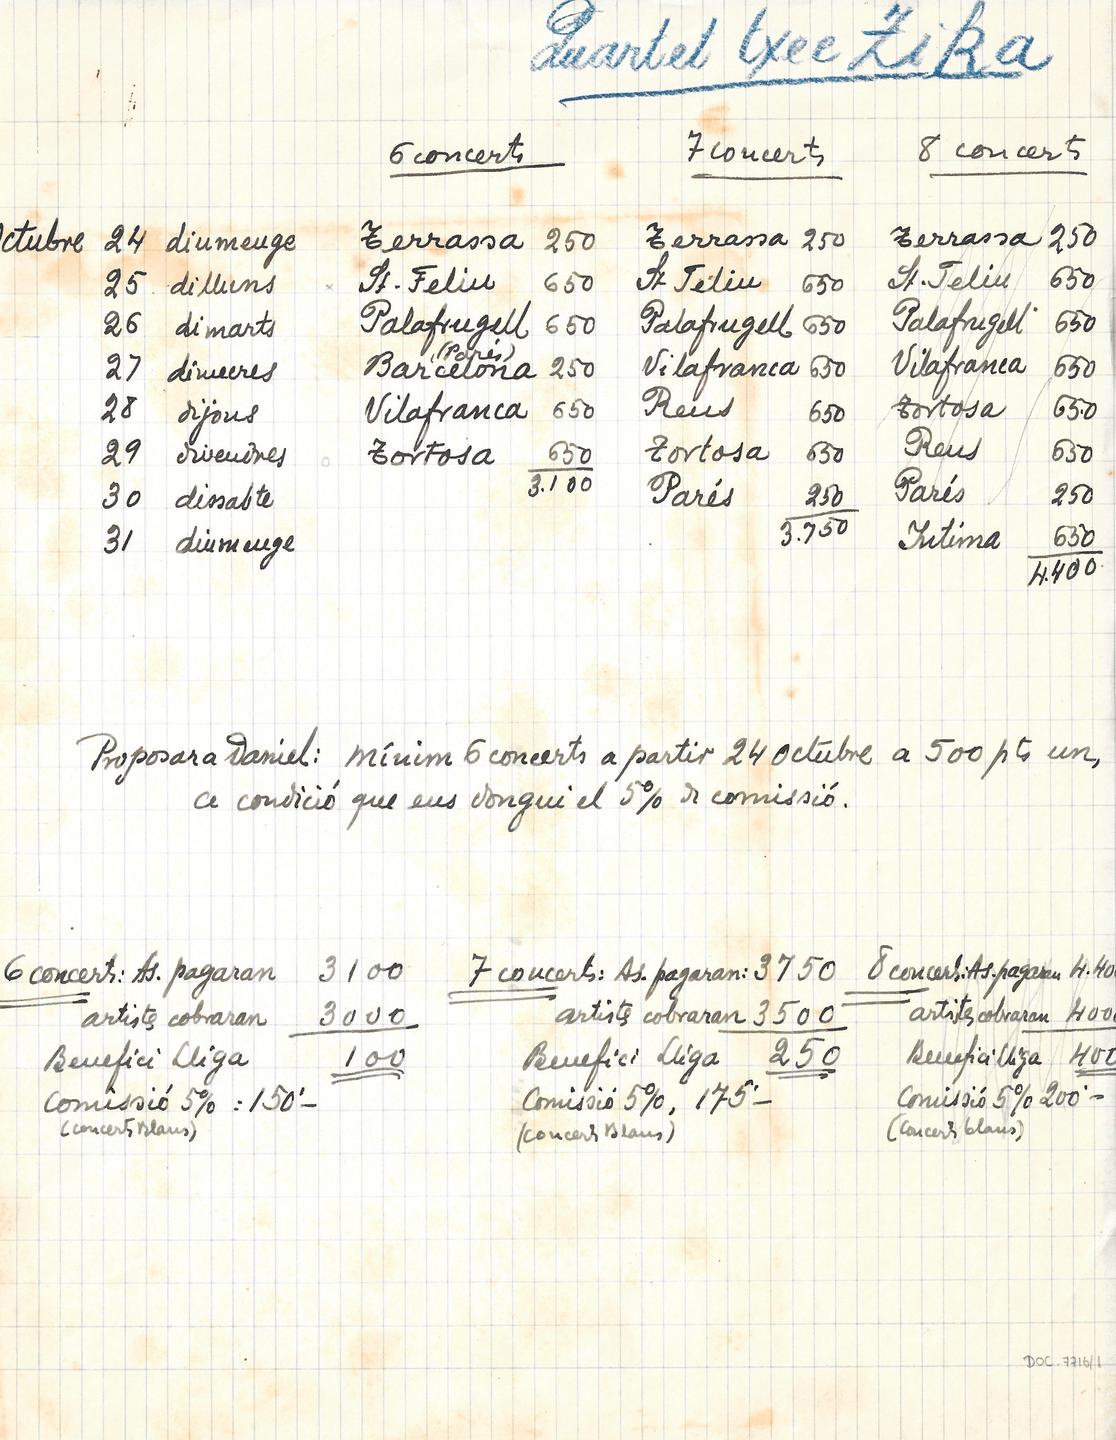 Quartet txec Zika
6 concerts 7 concerts 8 concerts
Octubre 24 diumenge Terrassa 250 Terrassa 250 Terrassa 250
25 dilluns St. Feliu 650 St Feliu 650 St. Feliu 650
26 dimarts Palafrugell 650 Palafrugell 650 Palafrugell 650
(Parés)
27 dimecres Barcelona 250 Vilafranca 650 Vilafranca 650
28 dijous Vilafranca 650 Reus 650 Tortosa 650
29 divendres Tortosa 650 Tortosa 650 Reus 650
3.100
30 dissabte Parés 250 Parés 250
3.750
31 diumenge Intima 650
4.400
Proposar a Daniel: mínim 6 concerts a partir 24 Octubre a 500 pts un,
a condició que ens dongui el 5% de comissió.
6 concerts: As. pagaran 3100 7 concerts: As. pagaran: 3750 8 concerts: As. pagaran 4.40
artistes cobraran 3000 artistes cobraran 3500 artistes cobraran 400
Benefici Lliga 100 Benefici Lliga 250 Benefici Lliga 400
Comissió 5% : 150'- Comissió 5%, 175'- Comissió 5% 200'-
(Concerts Blaus) (Concerts Blaus) (Concerts blaus)
DOC. 7716/1